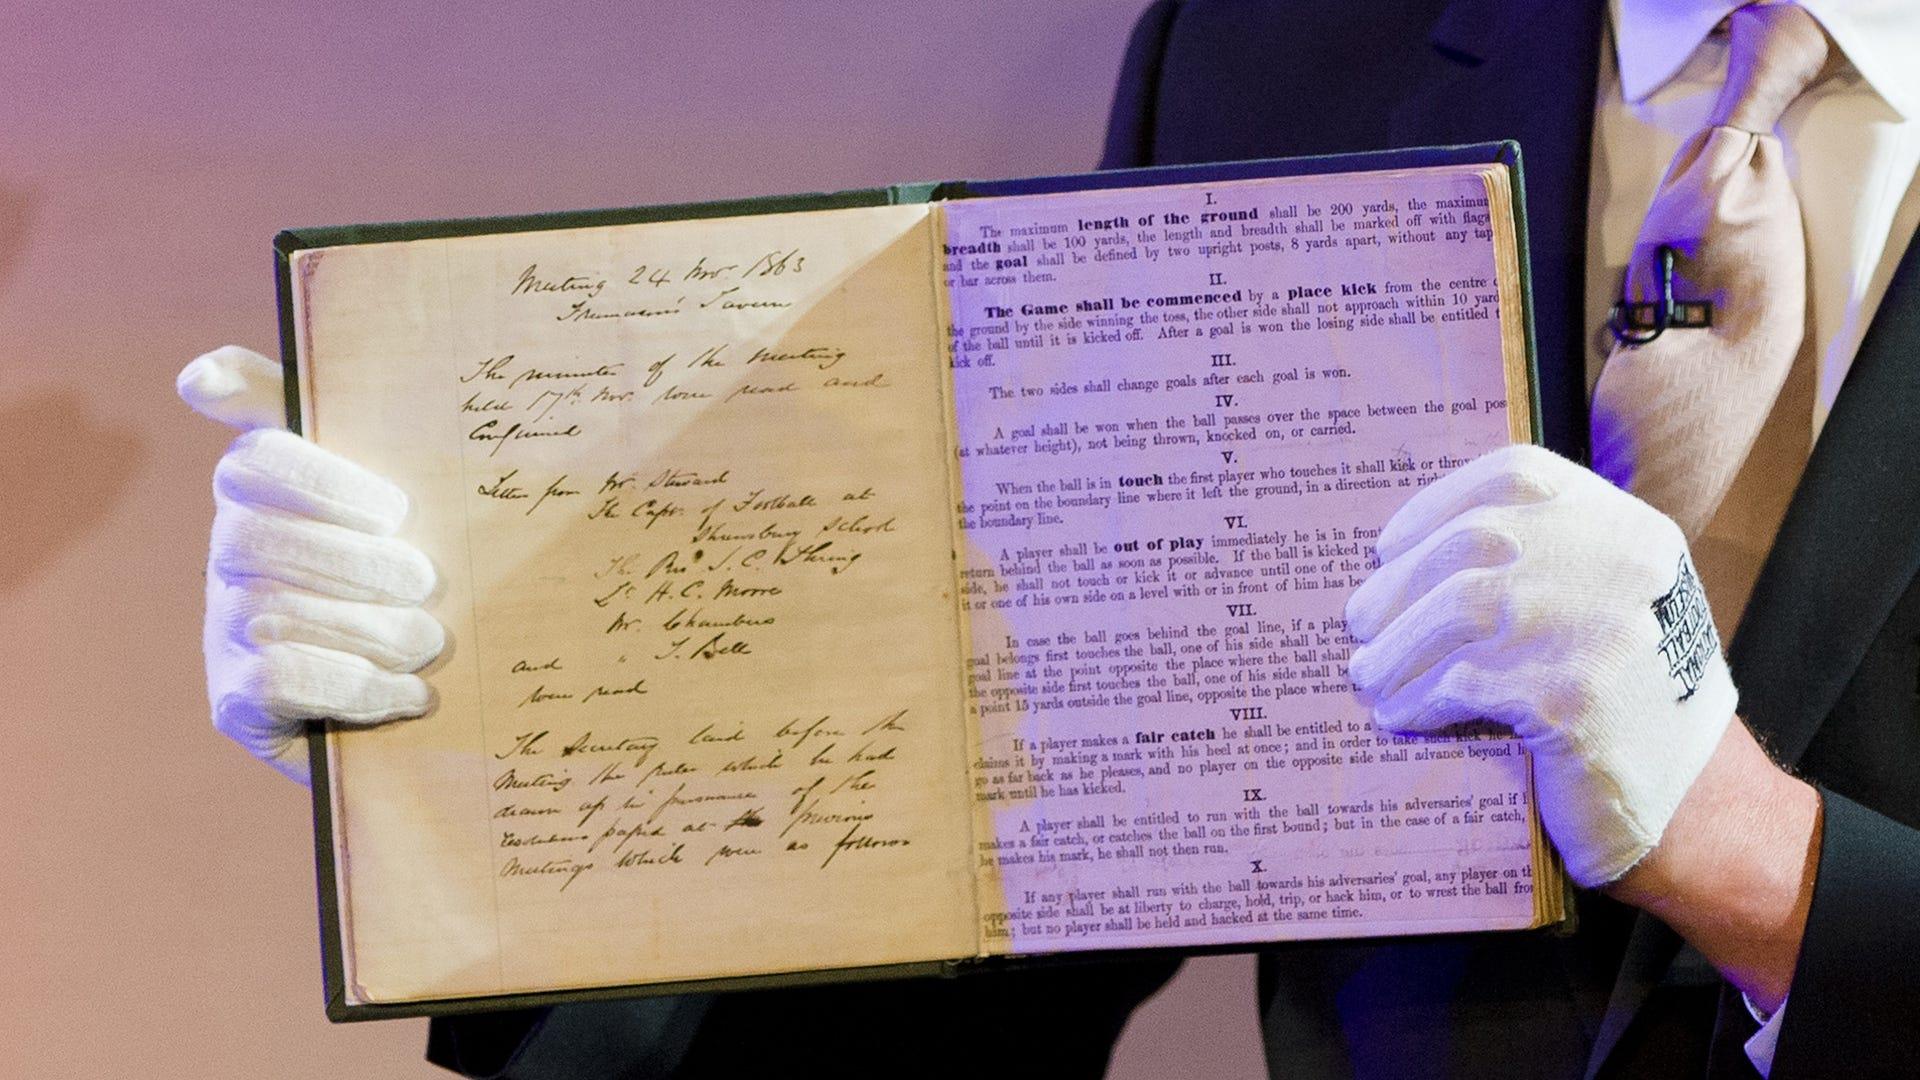 Meeting 24 Nov. 1863
Freemason's Tavern
The minutes of the Meeting
held 17th Nov. were read and
Confirmed
Letters from Mr. Steward
The Capt. of Football at
Shrewsbury School
The Rev. J. C. Thring
Lt H. C. Moore
Mr. Chambers
and " J. Bell
were read
The Secretary laid before the
Meeting the rules which he had
drawn up in pursuance of the
resolutions passed at the previous
Meetings which were as follows
I.
The maximum length of the ground shall be 200 yards, the maximum
breadth shall be 100 yards, the length and breadth shall be marked off with flags
and the goal shall be defined by two upright posts, 8 yards apart, without any tap
or bar across them.
II.
The Game shall be commenced by a place kick from the centre
the ground by the side winning the toss, the other side shall not approach within 10 yard
of the ball until it is kicked off. After a goal is won the losing side shall be entitled t
kick off.
III.
The two sides shall change goals after each goal is won.
IV.
A goal shall be won when the ball passes over the space between the goal pos
(at whatever height), not being thrown, knocked on, or carried.
V.
When the ball is in touch the first player who touches it shall kick or throw
the point on the boundary line where it left the ground, in a direction at righ
the boundary line.
VI.
A player shall be out of play immediately he is in front
return behind the ball as soon as possible. If the ball is kicked p
side, he shall not touch or kick it or advance until one of the ot
it or one of his own side on a level with or in front of him has be
VII.
In case the ball goes behind the goal line, if a play
goal belongs first touches the ball, one of his side shall be ent
goal line at the point opposite the place where the ball shall
the opposite side first touches the ball, one of his side shall be
a point 15 yards outside the goal line, opposite the place where
VIII.
If a player makes a fair catch he shall be entitled to a
claims it by making a mark with his heel at once; and in order to take such kick he
go as far back as he pleases, and no player on the opposite side shall advance beyond h
mark until he has kicked.
IX.
A player shall be entitled to run with the ball towards his adversaries' goal if
makes a fair catch, or catches the ball on the first bound; but in the case of a fair catch,
he makes his mark, he shall not then run.
X.
If any player shall run with the ball towards his adversaries' goal, any player on th
opposite side shall be at liberty to charge, hold, trip, or hack him, or to wrest the ball from
him; but no player shall be held and hacked at the same time.
NATIONAL
FOOTBALL
MUSEUM